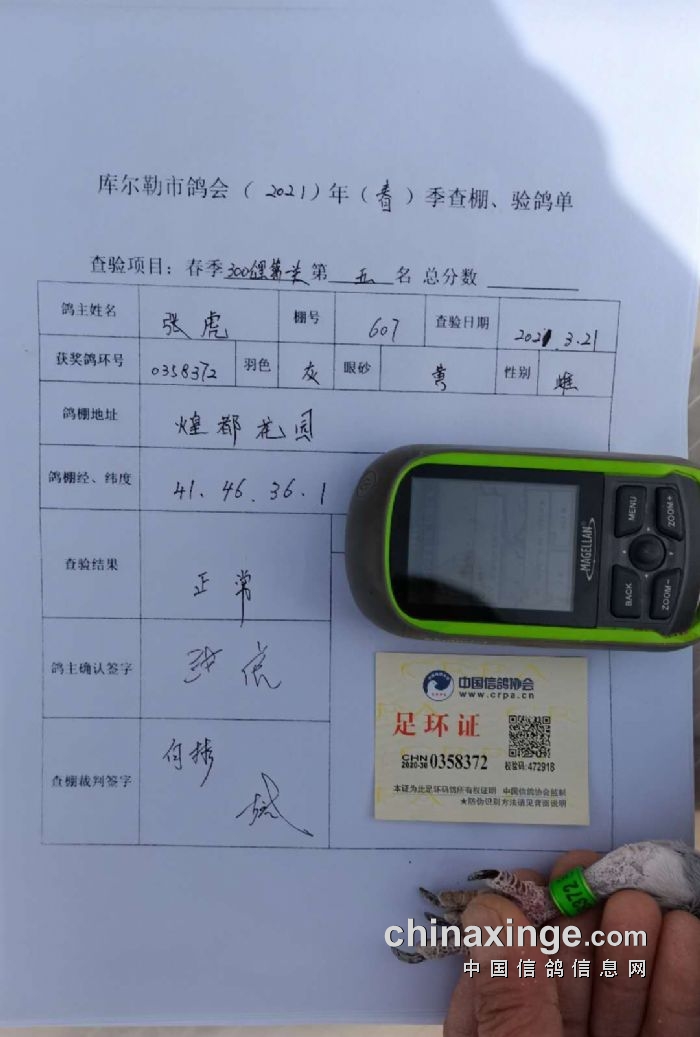 库尔勒市鸽会（2021）年（春）季查棚、验鸽单
查验项目：春季300 第 五 名 总分数
鸽主姓名 张虎 棚号 607 查验日期 2021.3.21
获奖鸽环号 0358372 羽色 灰 眼砂 黄 性别 雌
鸽棚地址 煌都花园
鸽棚经、纬度 41.46.36.1
查验结果 正常
鸽主确认签字 张虎
查棚裁判签字
MAGELLAN
MENU
ZOOM+
BACK
ZOOM-
中国信鸽协会
www.crpa.cn
足环证
CHN
2020-30 0358372
校验码:472918
本证为此足环码鸽所有权证明 中国信鸽协会监制
★防伪识别方法请见背面说明
372
chinaxinge.com
中国信鸽信息网